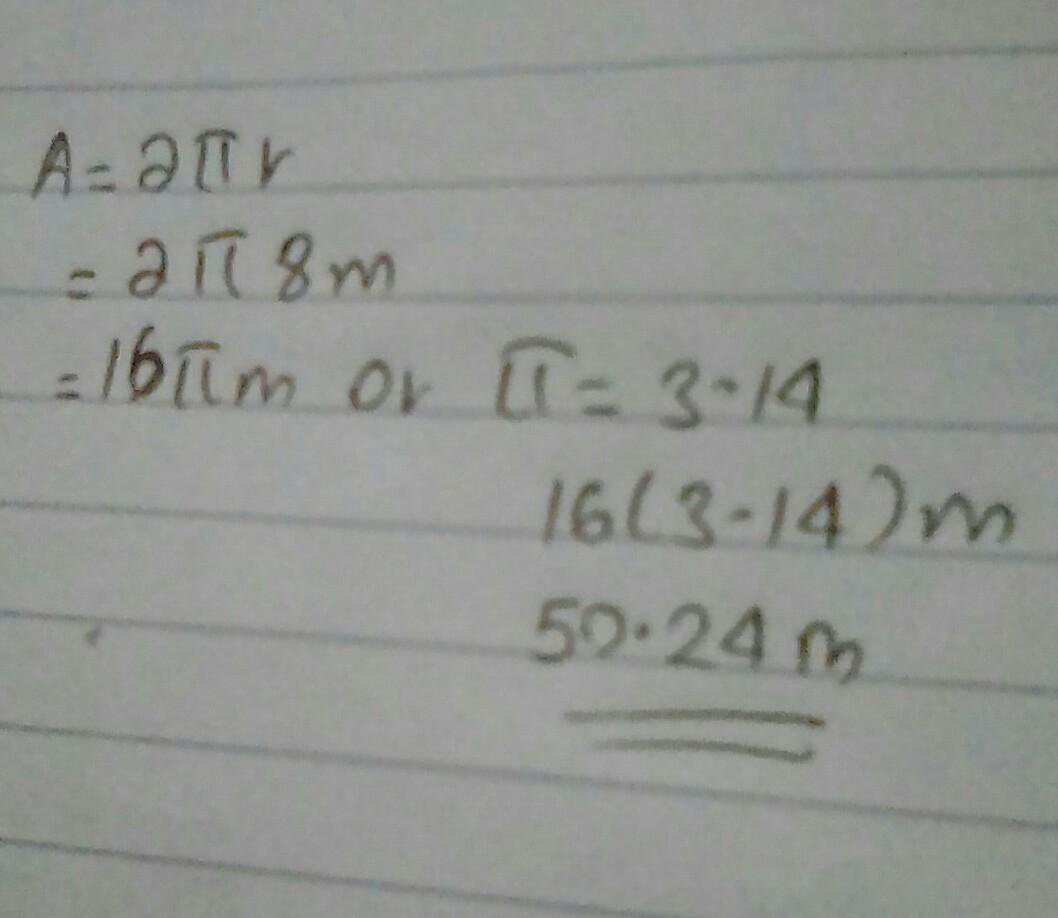 A = 2πr
= 2π 8m
= 16πm or π = 3.14
16(3.14)m
50.24 m